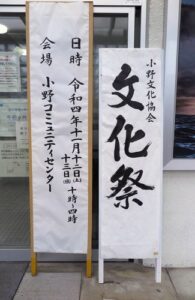 小野文化協会
文化祭
日時 令和四年十一月十二日(土)
十三日(日) 十時~四時
会場 小野コミュニティセンター